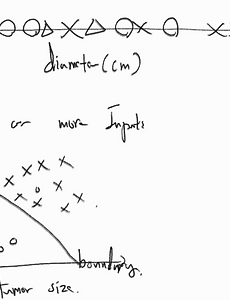 diameter (cm)
or more Inputs
boundary.
tumor size.